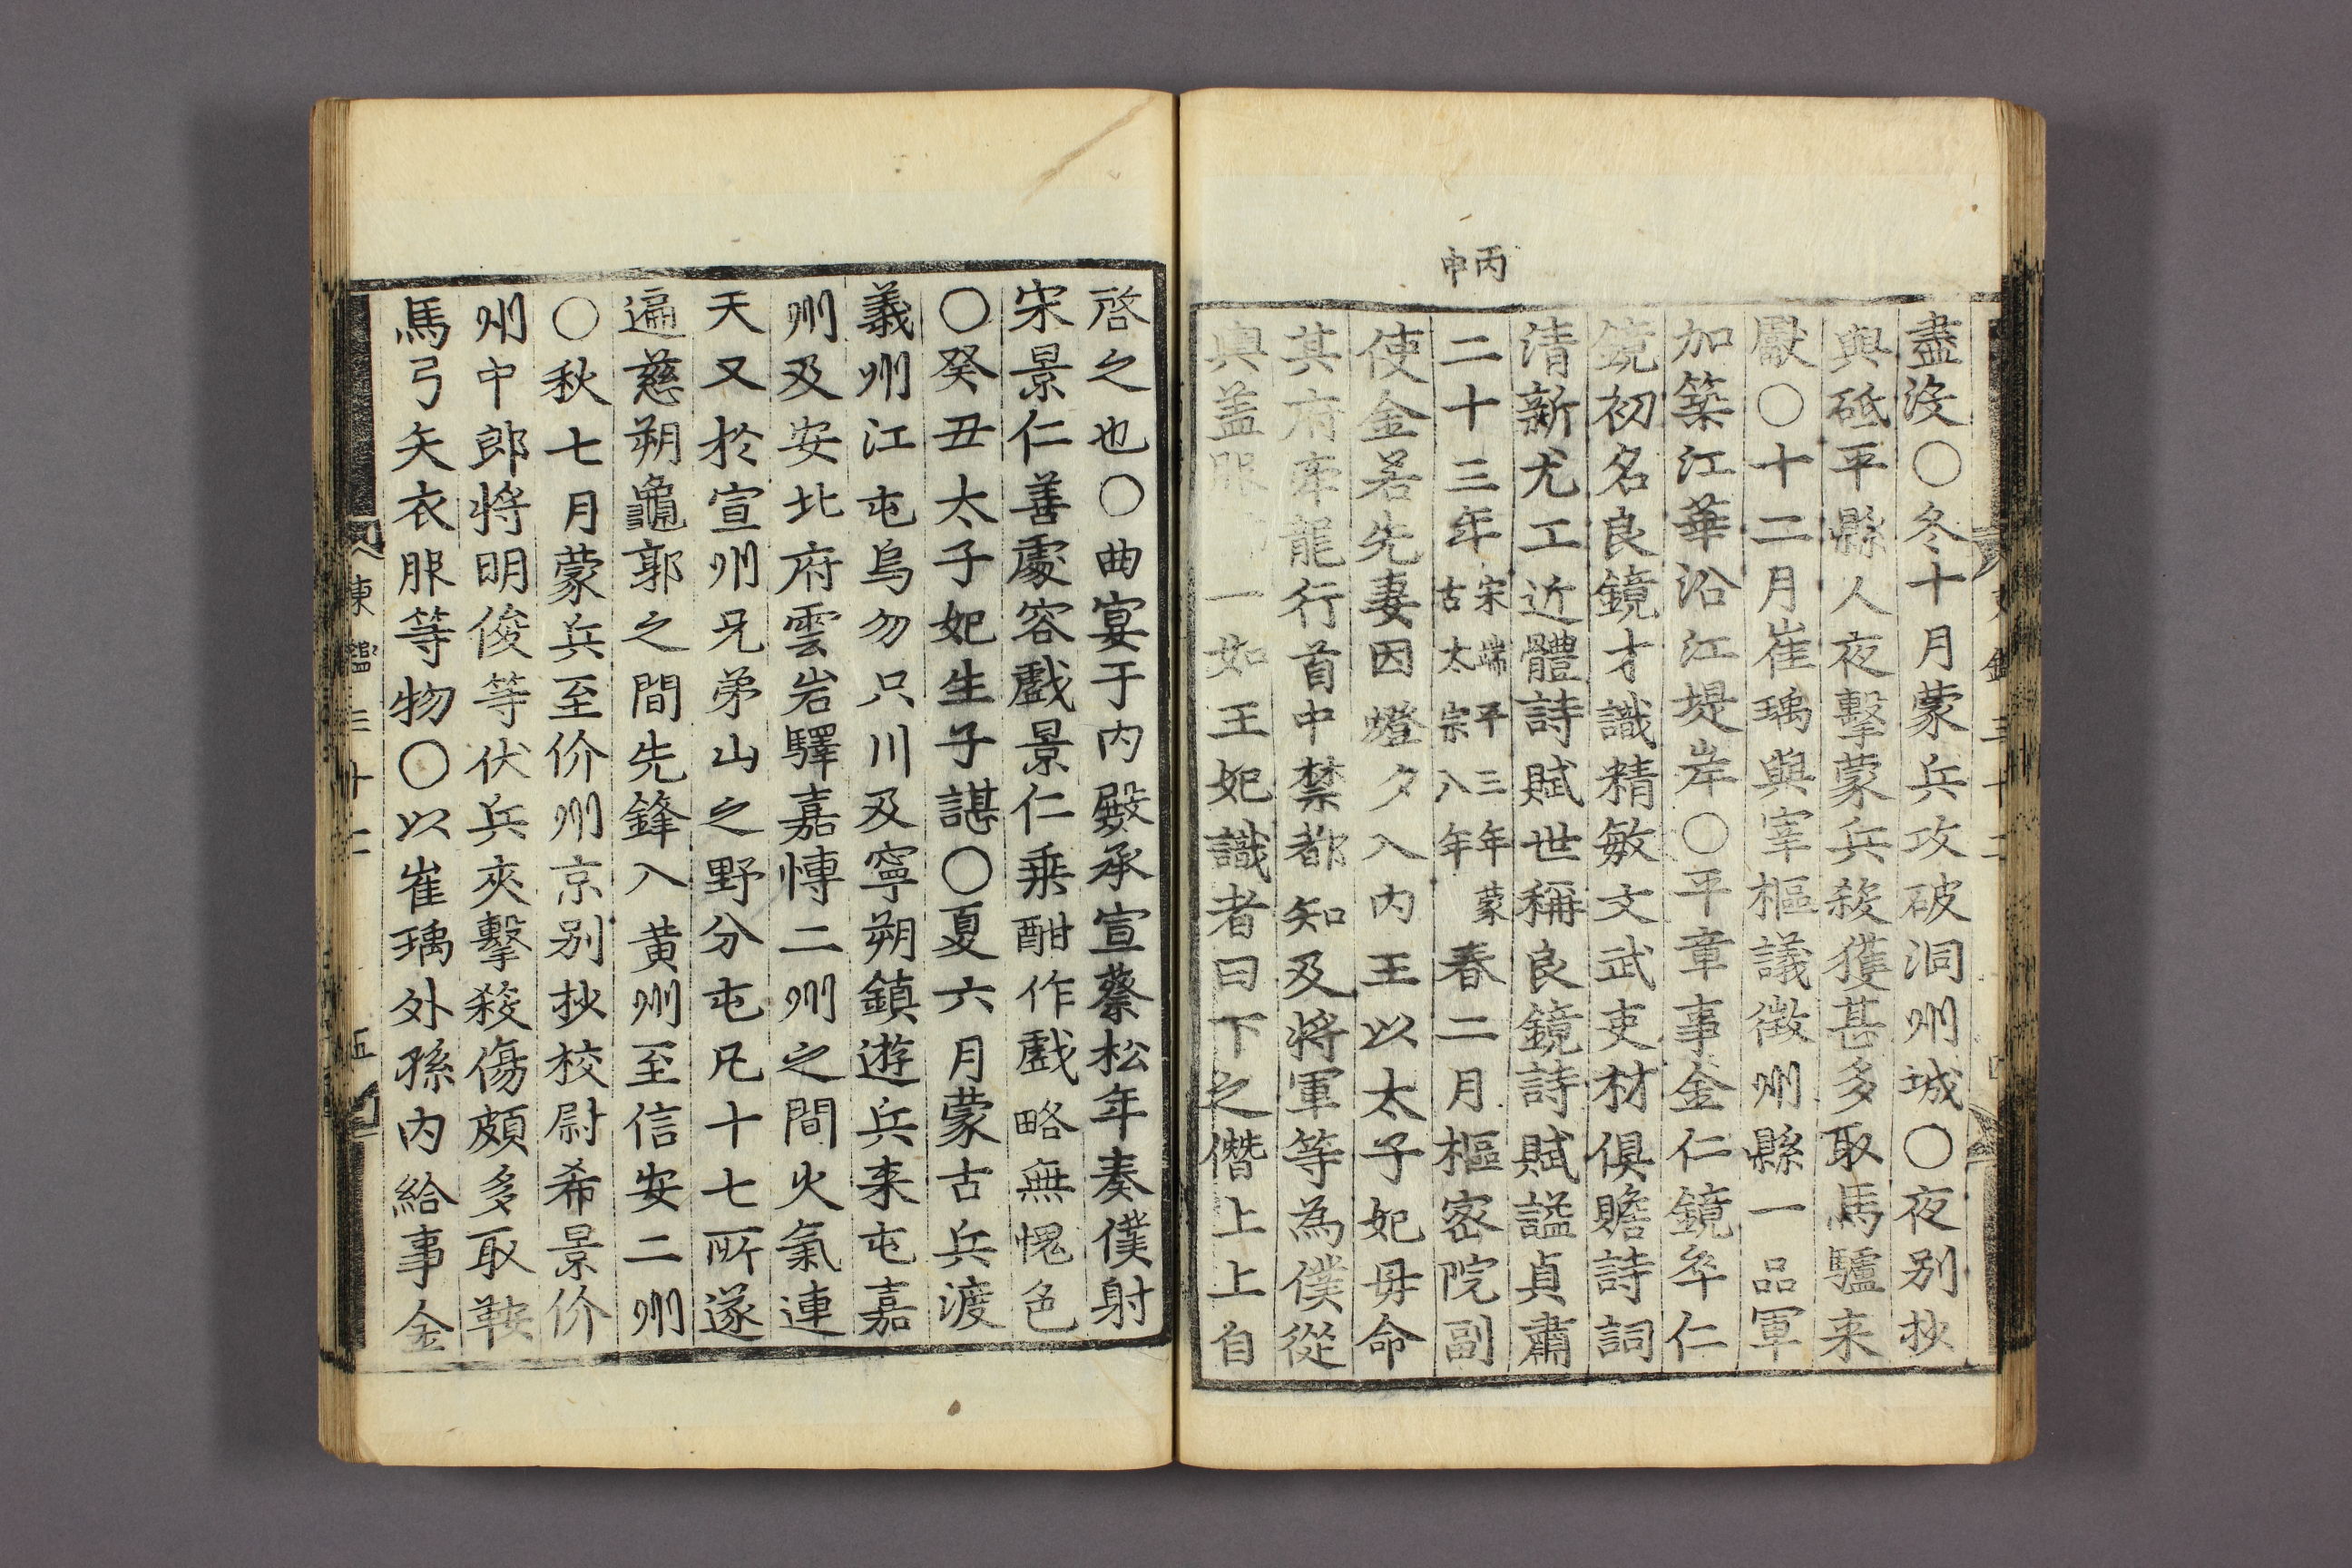 丙申
盡沒○冬十月蒙兵攻破洞州城○夜別抄
與砥平縣人夜擊蒙兵殺獲甚多取馬驢来
獻○十二月崔瑀與宰樞議徵州縣一品軍
加築江華沿江堤岸○平章事金仁鏡卒仁
鏡初名良鏡才識精敏文武吏材俱贍詩詞
清新尤工近體詩賦世稱良鏡詩賦謚貞肅
二十三年宋端平三年蒙古太宗八年春二月樞密院副
使金若先妻因燈夕入內王以太子妃毋命
其府牽龍行首中禁都知及將軍等為僕從
輿盖服 一如王妃識者曰下之僭上上自
啓之也○曲宴于內殿承宣蔡松年奏僕射
宋景仁善處容戲景仁乗酣作戲略無愧色
○癸丑太子妃生子諶○夏六月蒙古兵渡
義州江屯烏勿只川及寧朔鎮遊兵来屯嘉
州及安北府雲岩驛嘉慱二州之間火氣連
天又於宣州兄弟山之野分屯凡十七所遂
遍慈朔龜郭之間先鋒入黄州至信安二州
○秋七月蒙兵至价州京别抄校尉希景价
州中郎將明俊等伏兵夾擊殺傷頗多取鞍
馬弓矢衣服等物○以崔瑀外孫內給事金
東鑑三十二 五